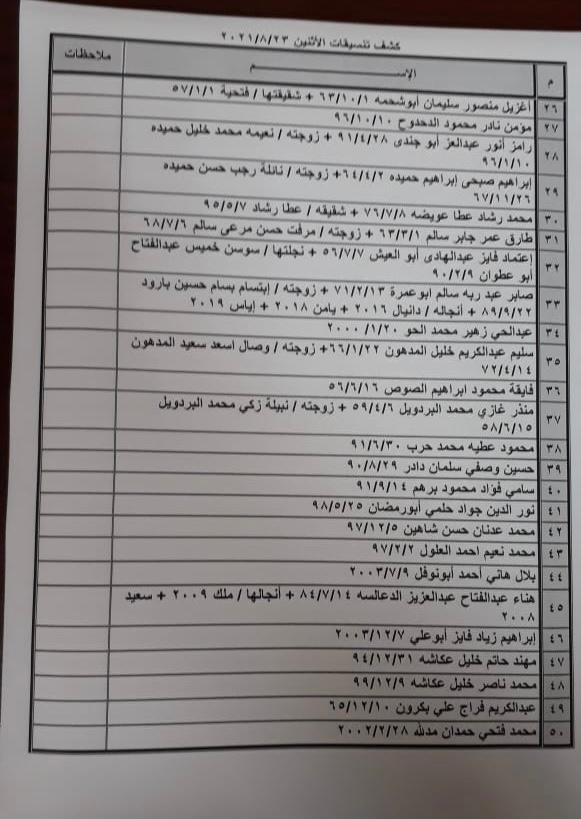 كشف تنسيقات الأثنين ٢٠٢١/٨/٢٣
م الإســـــــــم ملاحظات
٢٦ أغزيل منصور سليمان أبوشحمه ٦٣/١٠/١ + شقيقتها / فتحية ٥٧/١/١
٢٧ مؤمن نادر محمود الدحدوح ٩٦/١٠/١٠
٢٨ رامز أنور عبدالعز أبو جندى ٩١/٤/٢٨ + زوجته / نعيمه محمد خليل حميده
٩٦/١/١٠
٢٩ إبراهيم صبحى إبراهيم حميده ٦٤/٤/٢+ زوجته / نائلة رجب حسن حميده
٦٧/١١/٢٦
٣٠ محمد رشاد عطا عويضه ٧٦/٧/٨ + شقيقه / عطا رشاد ٩٥/٥/٧
٣١ طارق عمر جابر سالم ٦٣/٣/١ + زوجته / مرفت حسن مرعى سالم ٦٨/٧/٦
٣٢ إعتماد فايز عبدالهادى أبو العيش ٥٦/٧/٧ + نجلتها / سوسن خميس عبدالفتاح
أبو عطوان ٩٠/٢/٩
٣٣ صابر عبد ربه سالم ابوعمرة ٧١/٢/١٣ + زوجته / إبتسام بسام حسين بارود
٨٩/٩/٢٢ + أنجاله / دانيال ٢٠١٦ + يامن ٢٠١٨ + إياس ٢٠١٩
٣٤ عبدالحي زهير محمد الحو ٢٠٠٠/١/٢٠
٣٥ سليم عبدالكريم خليل المدهون ٦٦/١/٢٢+ زوجته / وصال اسعد سعيد المدهون
٧٢/٤/١٤
٣٦ فايقة محمود ابراهيم الصوص ٥٦/٦/١٦
٣٧ منذر غازي محمد البردويل ٥٩/٤/٦ + زوجته / نبيلة زكي محمد البردويل
٥٨/٦/١٥
٣٨ محمود عطيه محمد حرب ٩١/٦/٣٠
٣٩ حسين وصفي سلمان دادر ٩٠/٨/٢٩
٤٠ سامي فؤاد محمود برهم ٩١/٩/١٤
٤١ نور الدين جواد حلمي أبورمضان ٩٨/٥/٢٥
٤٢ محمد عدنان حسن شاهين ٩٧/١٢/٥
٤٣ محمد نعيم احمد العلول ٩٧/٢/٢
٤٤ بلال هاني أحمد أبونوفل ٢٠٠٣/٧/٩
٤٥ هناء عبدالفتاح عبدالعزيز الدعالسه ٨٤/٧/١٤ + أنجالها / ملك ٢٠٠٩ + سعيد
٢٠٠٨
٤٦ إبراهيم زياد فايز أبوعلي ٢٠٠٣/١٢/٧
٤٧ مهند حاتم خليل عكاشه ٩٤/١٢/٣١
٤٨ محمد ناصر خليل عكاشه ٩٩/١٢/٩
٤٩ عبدالكريم فراج علي بكرون ٦٥/١٢/١٠
٥٠ محمد فتحي حمدان مدلله ٢٠٠٢/٢/٢٨